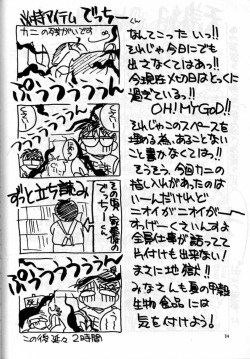 当時アイテム でっちーくん
カニの残がいです
ぷぅっうううぅん
ずっと立ち読み
その頃、家主の
でっちーくん
ぷうっううううん
この後延々2時間
なんてこったいいっ!!
それじゃ今日にでも
出さなくてはあっ!!
今現在〆切日はとっくに
過ぎている。!!
OH! MY GOD!!
それじゃこのスペースを
埋める為、あることない
こと書かなくては!!
そうそう、今回カニの
差し入れがあったのは
いーんだけれど
ニオイがニオイがー
すっげーくさいんすよ
全員仕事が詰ってて
片付けも出来ない!
まさに地獄!!
みなさんも夏の甲殻
生物食品には
気を付けよう!